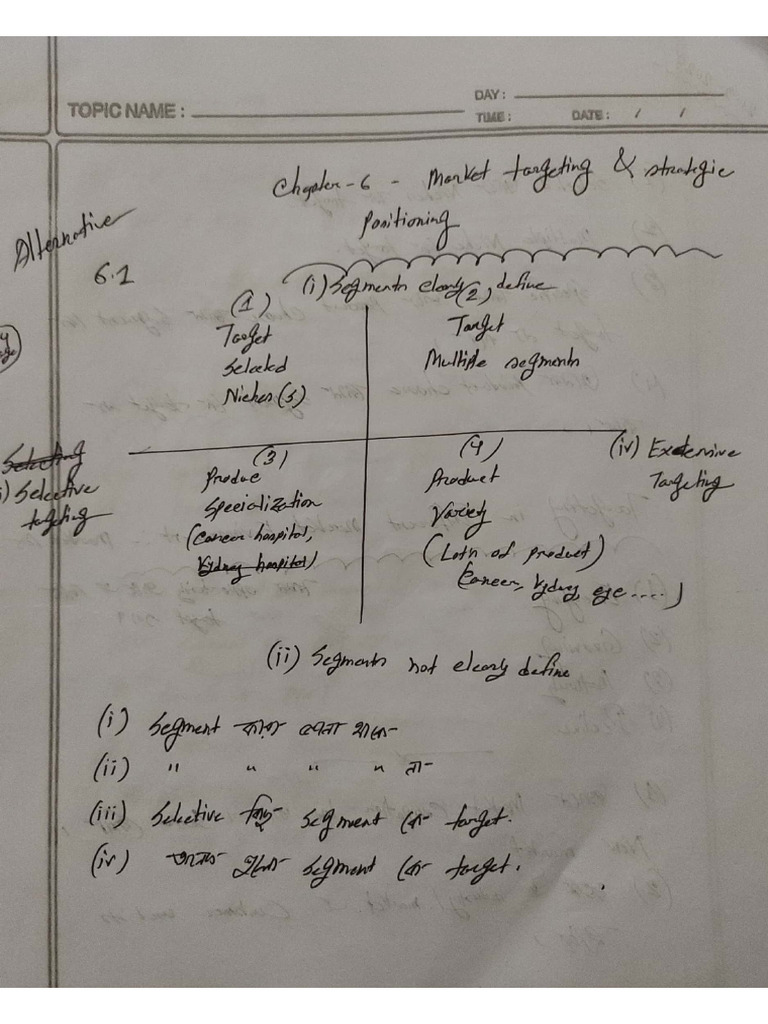 DAY :
TOPIC NAME :
TIME : DATE : / /
Chapter-6 - Market targeting & strategic
Positioning
Alternative
6.1
(i) Segments clearly define
(1)
Target
Selected
Niches (s)
(2)
Target
Multiple segments
Selecting
i) Selective
targeting
(3)
Produc
Specialization
(Cancer hospital,
Kidney hospital)
(4)
Product
Variety
(Lots of product)
Cancer, Kidney, eye ....)
(iv) Extensive
Targeting
(ii) Segments not clearly define
(i) Segment করা থাকে
(ii) " " " " না
(iii) Selective কিছু segment কে target.
(iv) অনেক গুলো segment কে target.